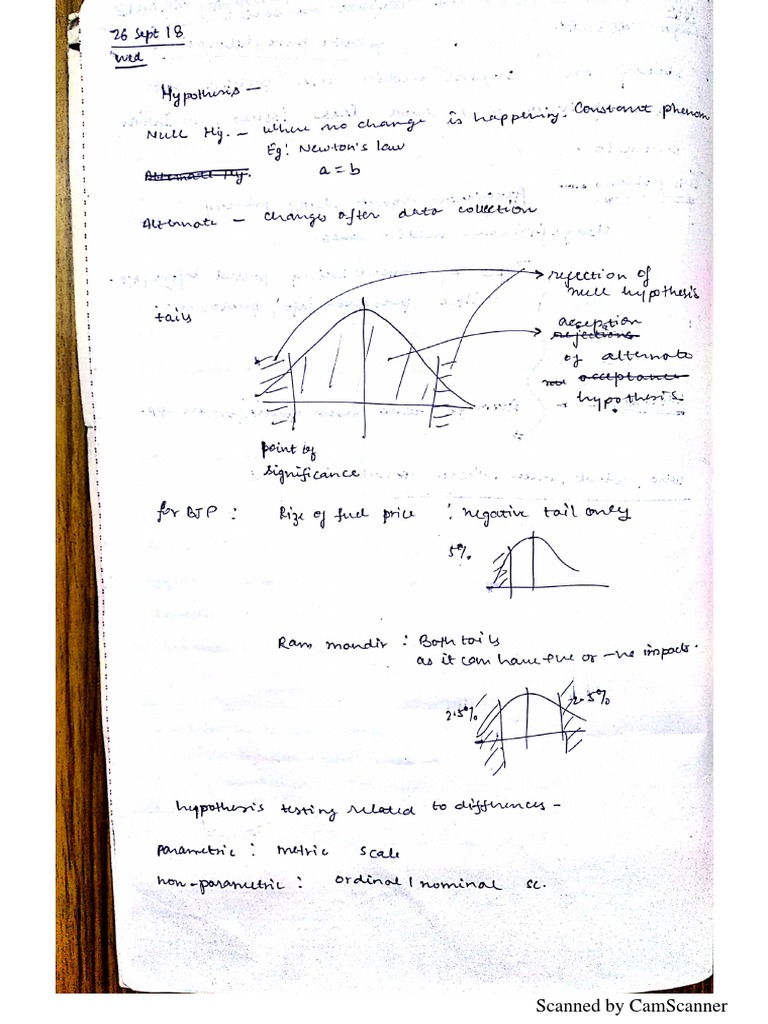 26 Sept 18
Wed
Hypothesis –
Null Hy. – where no change is happening. Constant phenom
Eg: Newton's law
Alternate Hy. a = b
Alternate – changes after data collection
rejection of
null hypothesis
tails
acseption
rejections
of alternate
acceptance
hypothesis.
point of
significance
for BJP : Rize of fuel price : negative tail only
5%.
Ram mandir : Both tails
as it can have +ve or -ve impacts.
2.5% 2.5%
hypothesis testing related to differences –
parametric : metric scale
non-parametric : ordinal / nominal sc.
Scanned by CamScanner